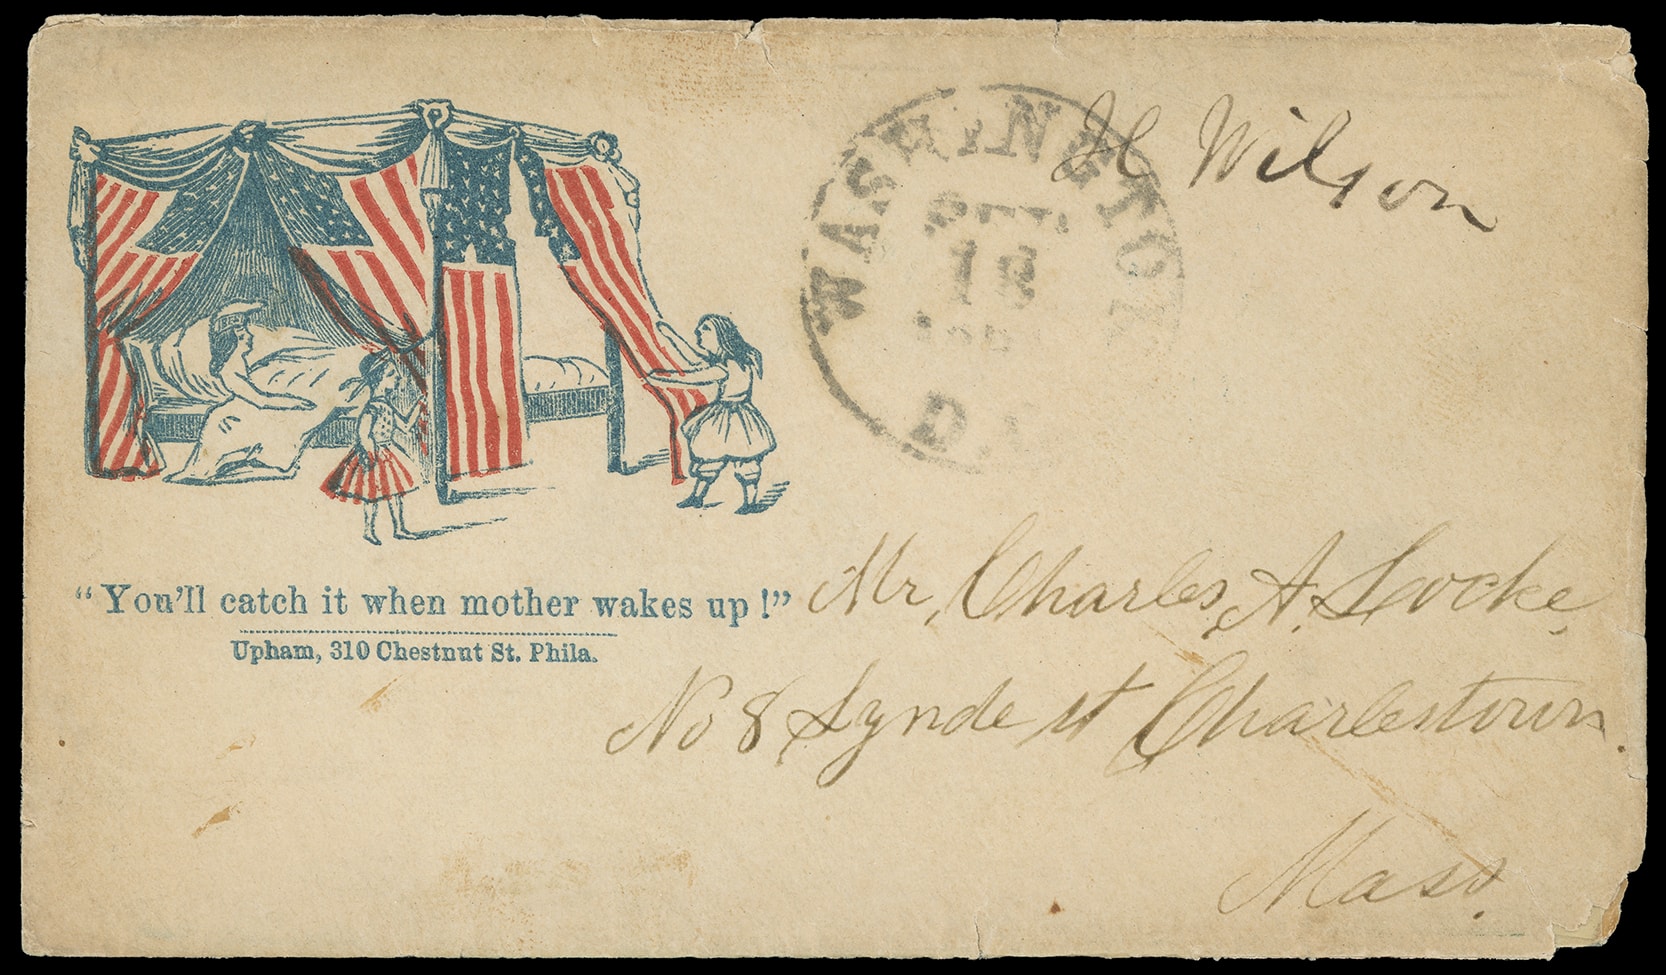 "You'll catch it when mother wakes up!"
Upham, 310 Chestnut St. Phila.
WASHINGTON
18
D.
H Wilson
Mr, Charles, A. Locke,
No 8 Lynde st Charlestown.
Mass.